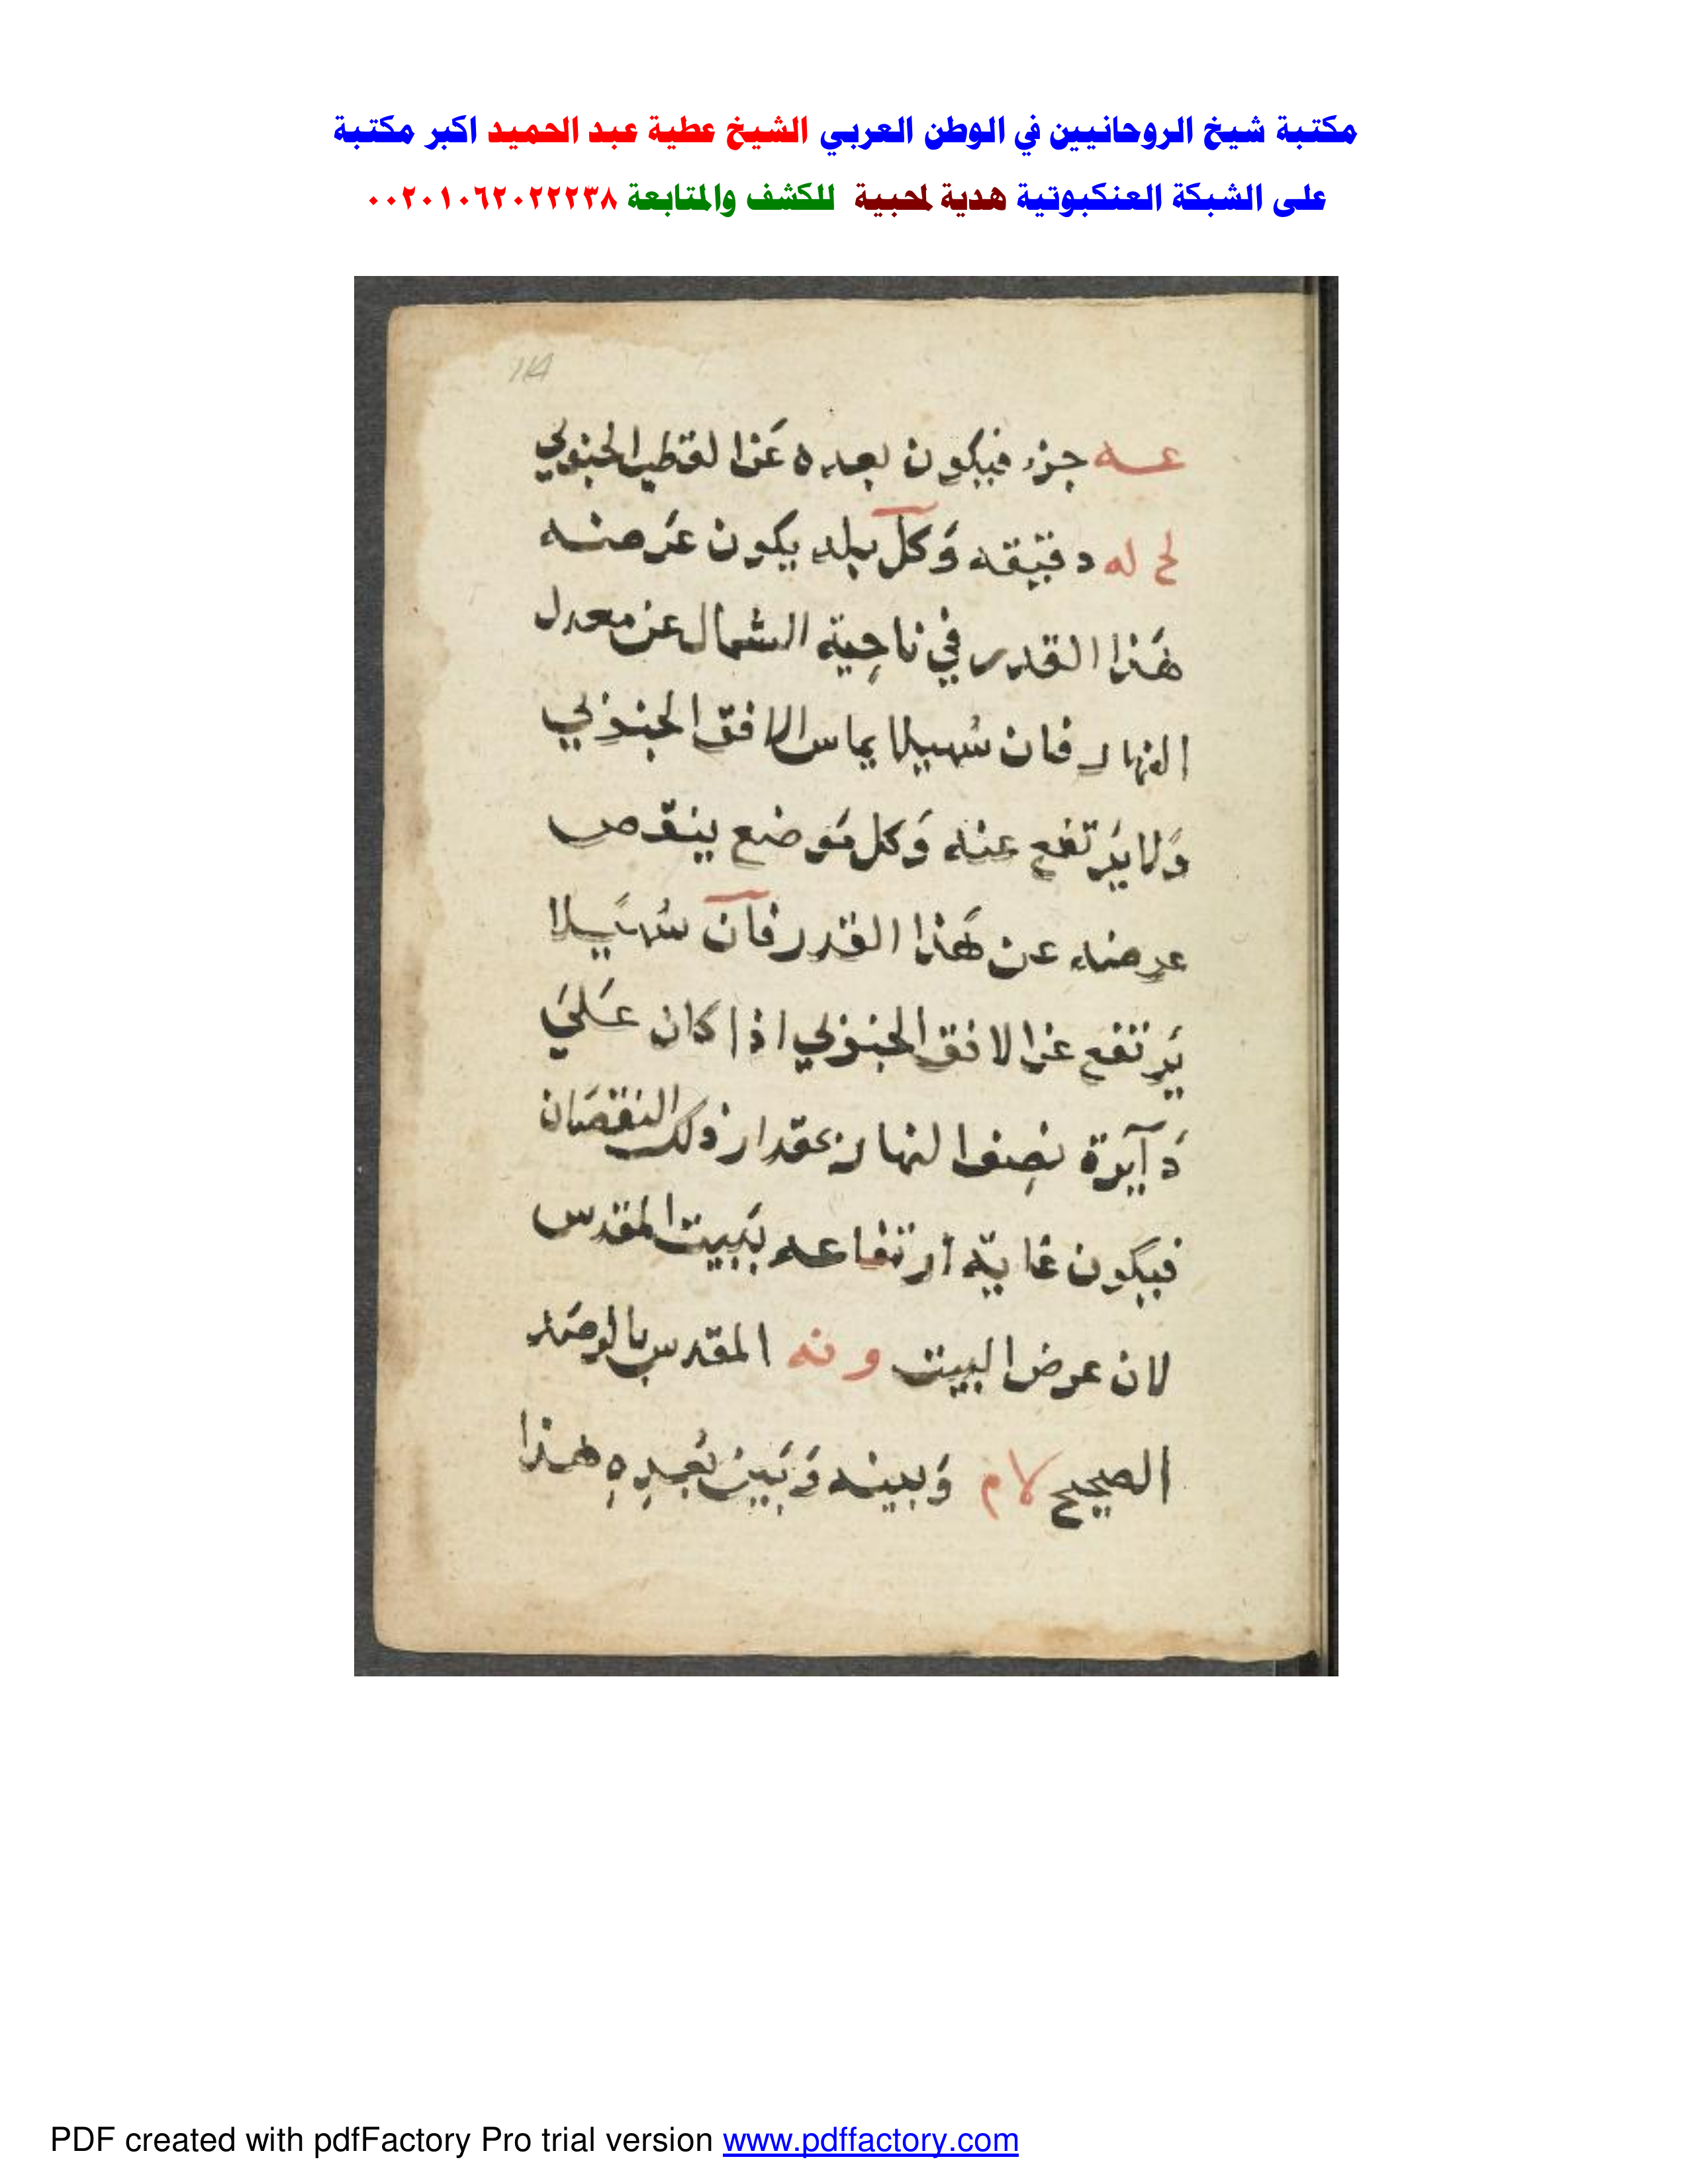 مكتبة شيخ الروحانيين في الوطن العربي الشيخ عطية عبد الحميد اكبر مكتبة
على الشبكة العنكبوتية هدية لمحبية للكشف والمتابعة ٠٠٢٠١٠٦٢٠٢٢٢٣٨
114
عه جزء فيكون بعده عَن القطب الجنوبي
لح له دقيقه وَكل بلد يكون عَرضه
هَذا القدر في ناحِية الشمال عن معدل
النهار فان سُهيلا يماس الافق الجنوبي
وَلا يَرتفع عنه وَكل مَوضع ينقص
عرضه عن هَذا القدر فان سُهَيلا
يَرتفع عن الافق الجنوبي اذا كان عَليَ
دَآيرة نصِف النهار بمقدار ذلك النقصَان
فيكون غاية ارتفاعه ببَيت المقدس
لان عرض البيت و نه المقدس بالرصَد
الصحيح لا م وَبينه وَبَين بُعدِهِ هذا
PDF created with pdfFactory Pro trial version www.pdffactory.com